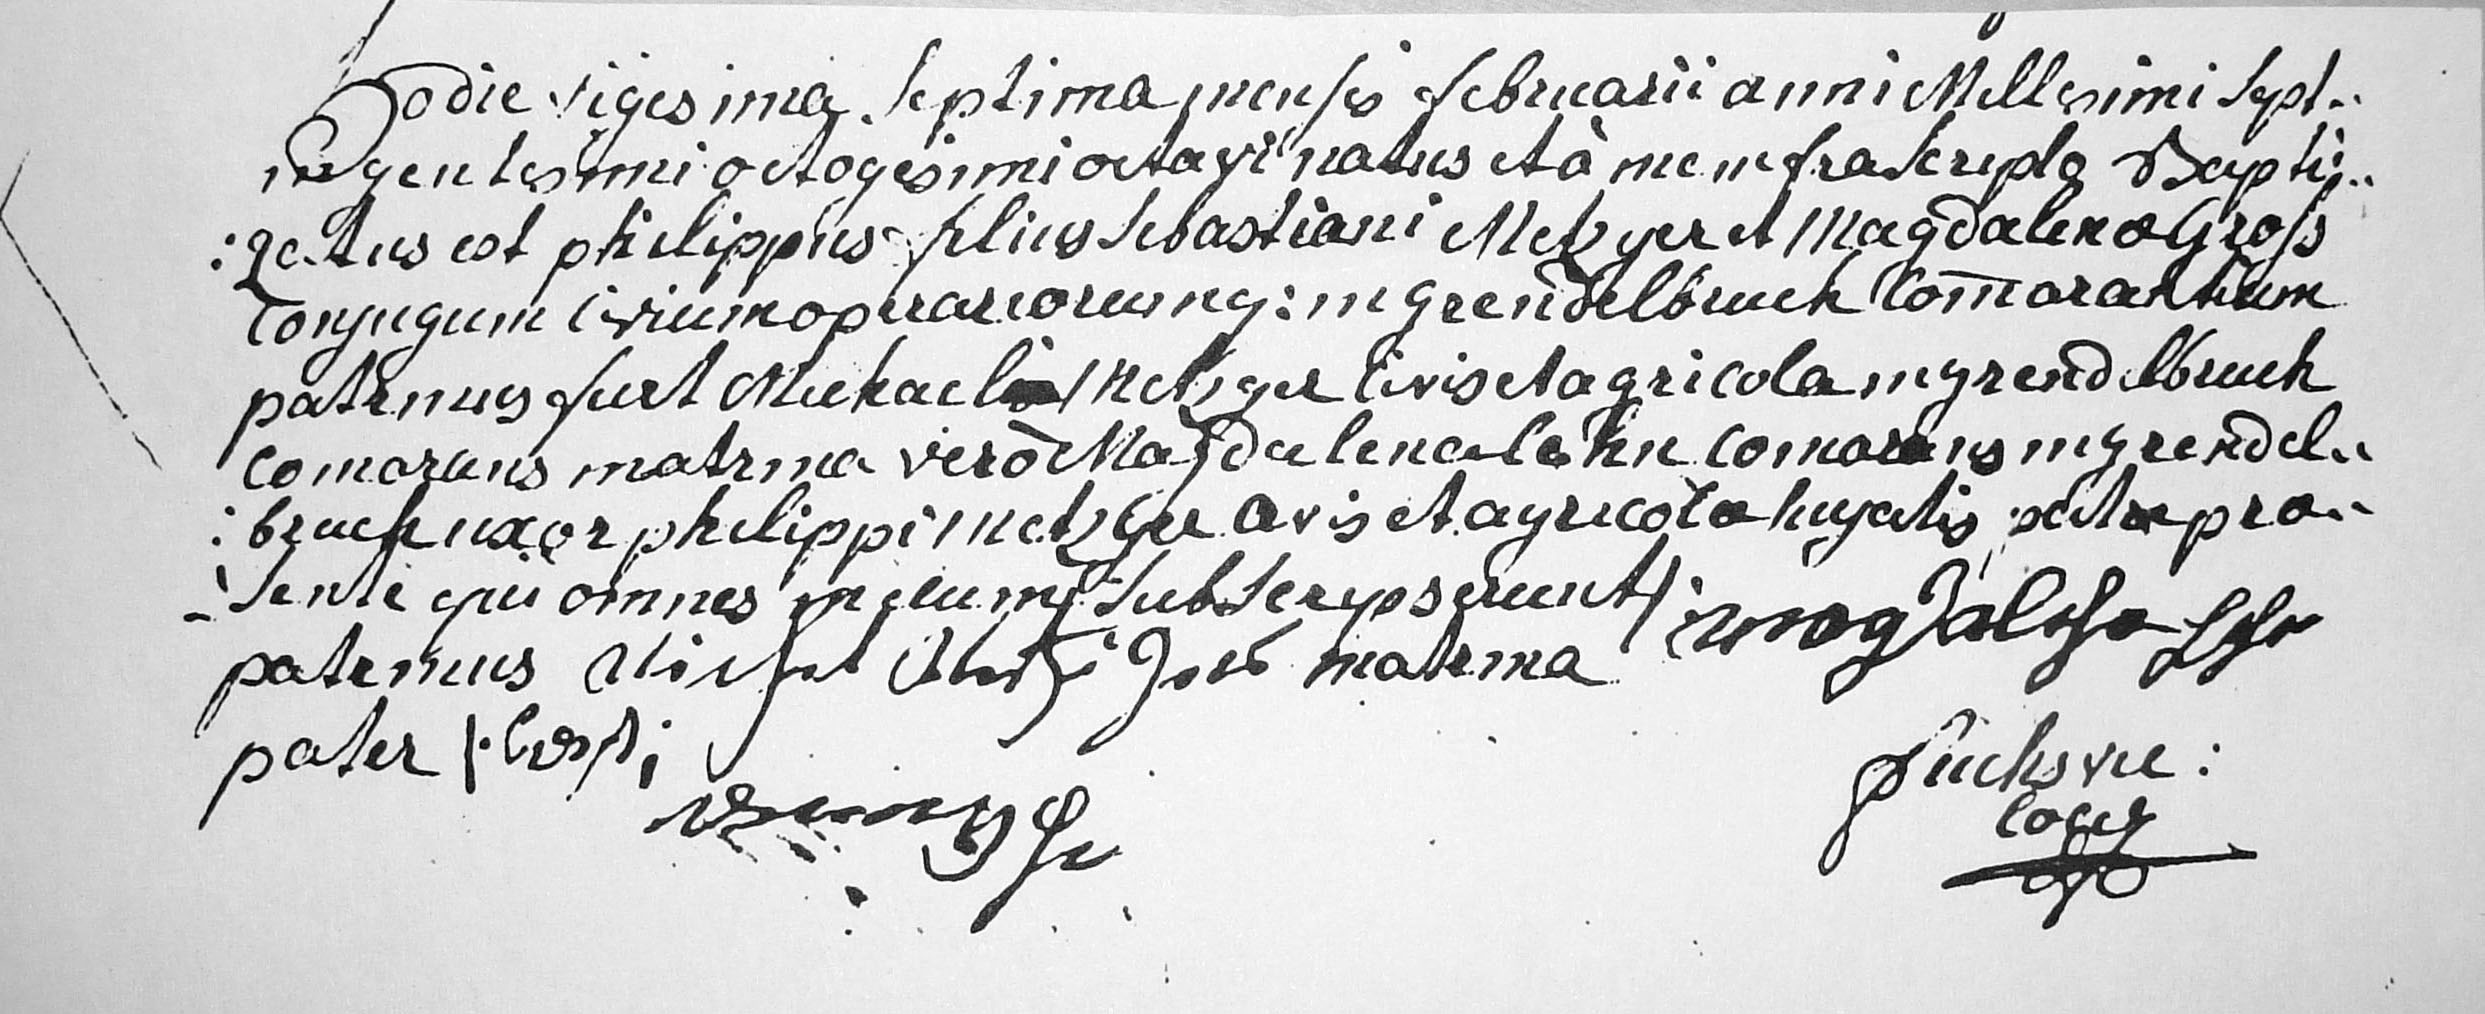 Hodie vigesima septima mensis februarii anni Millesimi Sept..
ingentesimi octogesimi octavi natus et à me infra scripto Bapti..
:zatus est philippus filius Sebastiani Metzger et Magdalena Gross
Conjugum Civium operariorumq: in grendelbruch Com̄orantium
patrinus fuit Michael Metzger Civis et agricola in grendelbruch
Comorans matrina verò Magdalena Comorans in grendel..
:bruch uxor philippi Metzger Civis et agricola hujatis, patre præ..
senti qui omnes mecum subscripserunt
patrinus matrina
pater
fuchs vic: